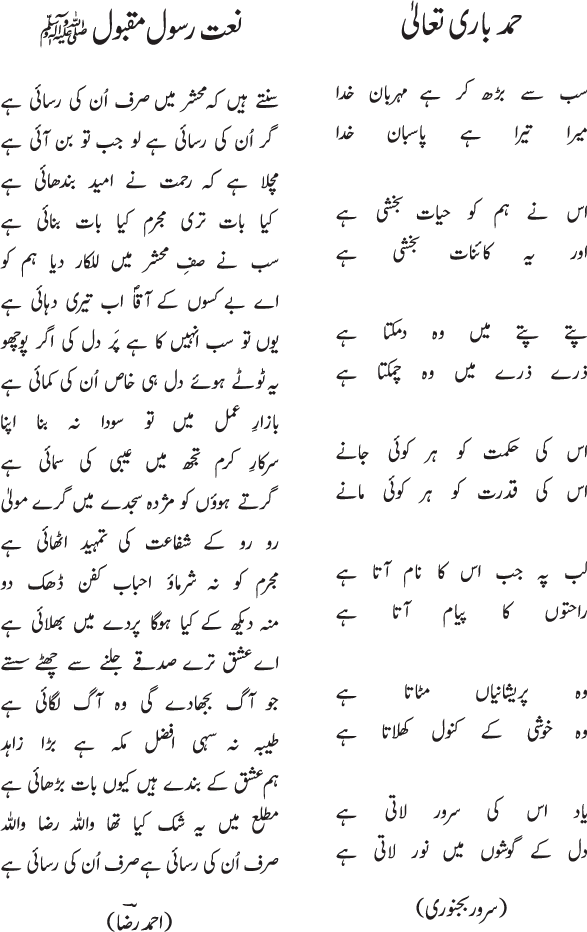 حمد باری تعالیٰ
سب سے بڑھ کر ہے مہربان خدا
میرا تیرا ہے پاسبان خدا
اس نے ہم کو حیات بخشی ہے
اور یہ کائنات بخشی ہے
پتے پتے میں وہ دمکتا ہے
ذرے ذرے میں وہ چمکتا ہے
اس کی حکمت کو ہر کوئی جانے
اس کی قدرت کو ہر کوئی مانے
لب پہ جب اس کا نام آتا ہے
راحتوں کا پیام آتا ہے
وہ پریشانیاں مٹاتا ہے
وہ خوشی کے کنول کھلاتا ہے
یاد اس کی سرور لاتی ہے
دل کے گوشوں میں نور لاتی ہے
(سرور بجنوری)
نعت رسول مقبول ﷺ
سنتے ہیں کہ محشر میں صرف اُن کی رسائی ہے
گر اُن کی رسائی ہے لو جب تو بن آئی ہے
مچلا ہے کہ رحمت نے امید بندھائی ہے
کیا بات تری مجرم کیا بات بنائی ہے
سب نے صفِ محشر میں للکار دیا ہم کو
اے بے کسوں کے آقاؐ اب تیری دہائی ہے
یوں تو سب انہیں کا ہے پَر دل کی اگر پوچھو
یہ ٹوٹے ہوئے دل ہی خاص اُن کی کمائی ہے
بازارِ عمل میں تو سودا نہ بنا اپنا
سرکارِ کرم تجھ میں عیبی کی سمائی ہے
گرتے ہووُں کو مژدہ سجدے میں گرے مولیٰ
رو رو کے شفاعت کی تمہید اٹھائی ہے
مجرم کو نہ شرماؤ احباب کفن ڈھک دو
منہ دیکھ کے کیا ہوگا پردے میں بھلائی ہے
اے عشق ترے صدقے جلنے سے چھٹے ستے
جو آگ بجھادے گی وہ آگ لگائی ہے
طیبہ نہ سہی افضل مکہ ہے بڑا زاہد
ہم عشق کے بندے ہیں کیوں بات بڑھائی ہے
مطلع میں یہ شک کیا تھا واللہ رضا واللہ
صرف اُن کی رسائی ہے صرف اُن کی رسائی ہے
(احمد رضاؔ)